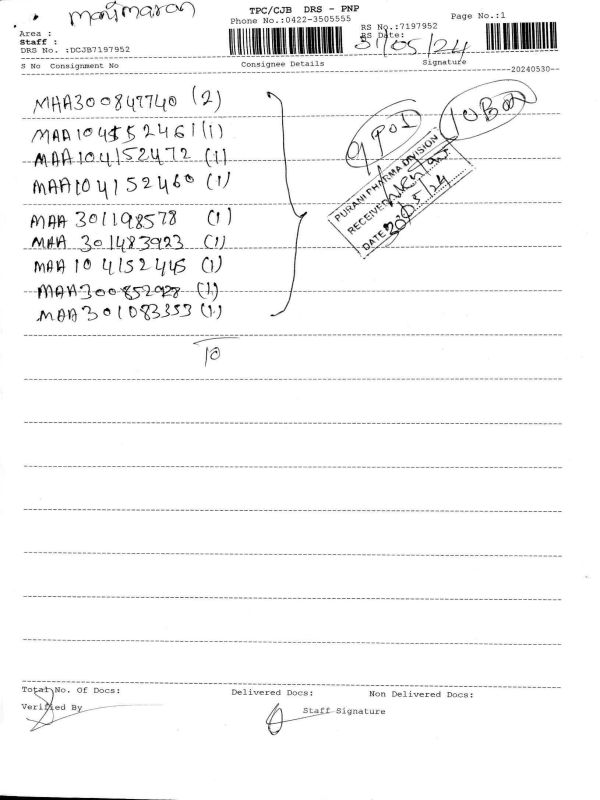 manimaran
TPC/CJB DRS - PNP
Page No.:1
Phone No.:0422-3505555
RS No.:7197952
Area :
RS Date:
Staff :
31/05/24
DRS No. :DCJB7197952
S No Consignment No
Consignee Details
Signature
--20240530--
MAA300847740 (2)
MAA104152461 (1)
MAA104152472 (1)
MAA104152460 (1)
MAA 301198578 (1)
MAA 301483923 (1)
MAA 104152445 (1)
MAA300852928 (1)
MAA301083353 (1)
10
9 POD
10 Box
PURANI PHARMA DIVISION
RECEIVED
DATE 30/05/24
Total No. Of Docs:
Delivered Docs:
Non Delivered Docs:
Verified By
Staff Signature